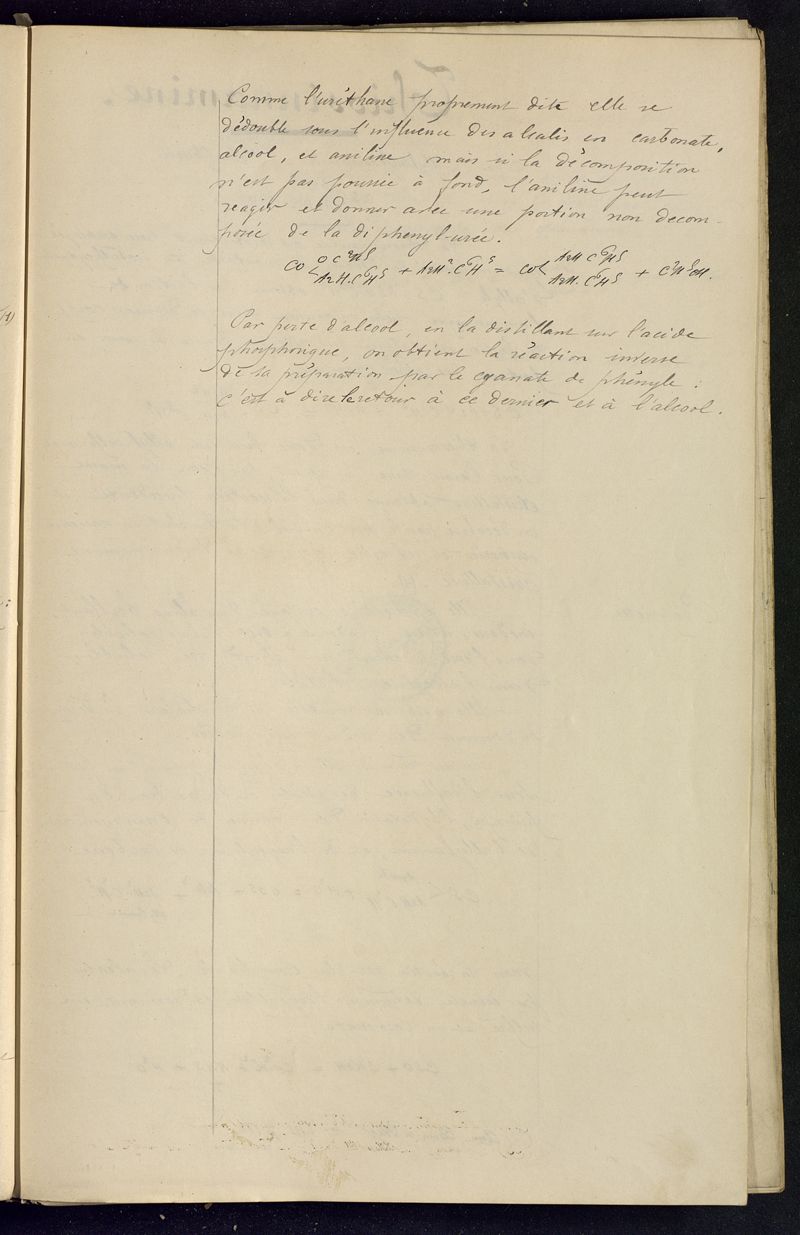 Comme l'uréthane proprement dite elle se
dédouble sous l'influence des alcalis en carbonate,
alcool, et aniline mais si la décomposition
n'est pas poussée à fond, l'aniline peut
reagir et donner avec une portion non decom-
posée de la diphenyl-urée.
CO < O C²H⁵ / AzH.C⁶H⁵ + AzH².C⁶H⁵ = CO < AzH C⁶H⁵ / AzH.C⁶H⁵ + C²H⁵OH.
Par perte d'alcool, en la distillant sur l'acide
phosphorique, on obtient la réaction inverse
de sa préparation par le cyanate de phényle :
c'est à dire le retour à ce dernier et à l'alcool.